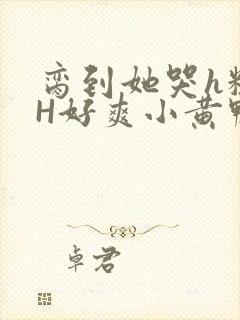 脔到她哭h粗
H好爽小黄鸭
卓君